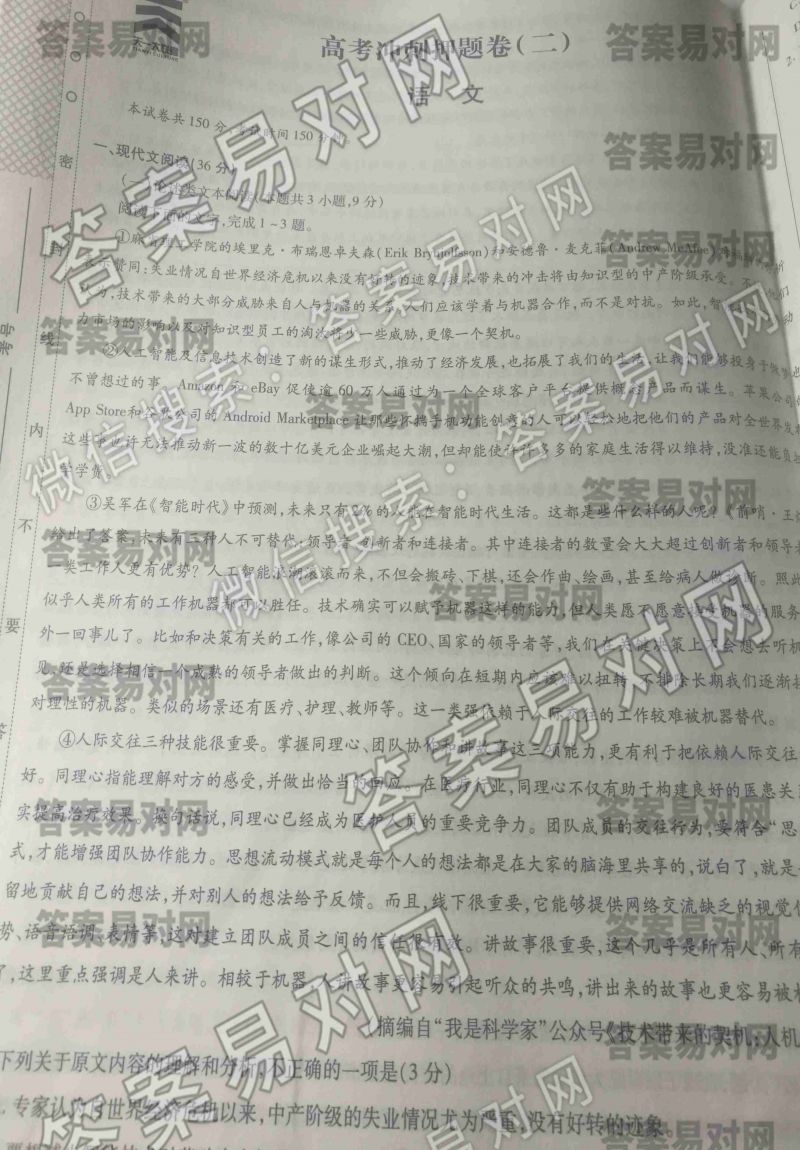 高考冲刺押题卷(二)
语 文
本试卷共150分,考试时间150分钟。
一、现代文阅读(36分)
(一)论述类文本阅读(本题共3小题,9分)
阅读下面的文字,完成1~3题。
①麻省理工学院的埃里克·布瑞恩卓夫森(Erik Brynjolfsson)和安德鲁·麦克菲(Andrew McAfee)
表示赞同:失业情况自世界经济危机以来没有好转的迹象,技术带来的冲击将由知识型的中产阶级承受。不
认为,技术带来的大部分威胁来自人与机器的关系,人们应该学着与机器合作,而不是对抗。如此,智
力市场的影响以及对知识型员工的淘汰将少一些威胁,更像一个契机。
②人工智能及信息技术创造了新的谋生形式,推动了经济发展,也拓展了我们的生活,让我们能够投身于做
不曾想过的事。Amazon 和 eBay 促使逾 60 万人通过为一个全球客户平台提供概念产品而谋生。苹果公司的
App Store和谷歌公司的 Android Marketplace 让那些怀揣手机功能创意的人可以轻松地把他们的产品对全世界发
这些事也许无法推动新一波的数十亿美元企业崛起大潮,但却能使许许多多的家庭生活得以维持,没准还能负
学学费。
③吴军在《智能时代》中预测,未来只有2%的人能在智能时代生活。这都是些什么样的人呢?《前哨·王
给出了答案,未来有三种人不可替代:领导者、创新者和连接者。其中连接者的数量会大大超过创新者和领导
一类工作人更有优势?人工智能浪潮滚滚而来,不但会搬砖、下棋,还会作曲、绘画,甚至给病人做诊断。照
似乎人类所有的工作机器都可以胜任。技术确实可以赋予机器这样的能力,但人类愿不愿意接受机器的服务
外一回事儿了。比如和决策有关的工作,像公司的 CEO、国家的领导者等,我们在关键决策上不会想去听机
见,还是选择相信一个成熟的领导者做出的判断。这个倾向在短期内应该难以扭转,不排除长期我们逐渐接
对理性的机器。类似的场景还有医疗、护理、教师等。这一类强依赖于人际交往的工作较难被机器替代。
④人际交往三种技能很重要。掌握同理心、团队协作和讲故事这三项能力,更有利于把依赖人际交往
好。同理心指能理解对方的感受,并做出恰当的回应。在医疗行业,同理心不仅有助于构建良好的医患关
实提高治疗效果。换句话说,同理心已经成为医护人员的重要竞争力。团队成员的交往行为,要符合“思
式,才能增强团队协作能力。思想流动模式就是每个人的想法都是在大家的脑海里共享的,说白了,就是
留地贡献自己的想法,并对别人的想法给予反馈。而且,线下很重要,它能够提供网络交流缺乏的视觉
势、语音语调、表情等,这对建立团队成员之间的信任很有效。讲故事很重要,这个几乎是所有人、所有
了,这里重点强调是人来讲。相较于机器,人讲故事更容易引起听众的共鸣,讲出来的故事也更容易被
(摘编自“我是科学家”公众号《技术带来的契机:人机
下列关于原文内容的理解和分析,不正确的一项是(3分)
专家认为自世界经济危机以来,中产阶级的失业情况尤为严重,没有好转的迹象。
密
封
线
内
不
要
答
考号
答案易对网
微信搜索:答案易对网